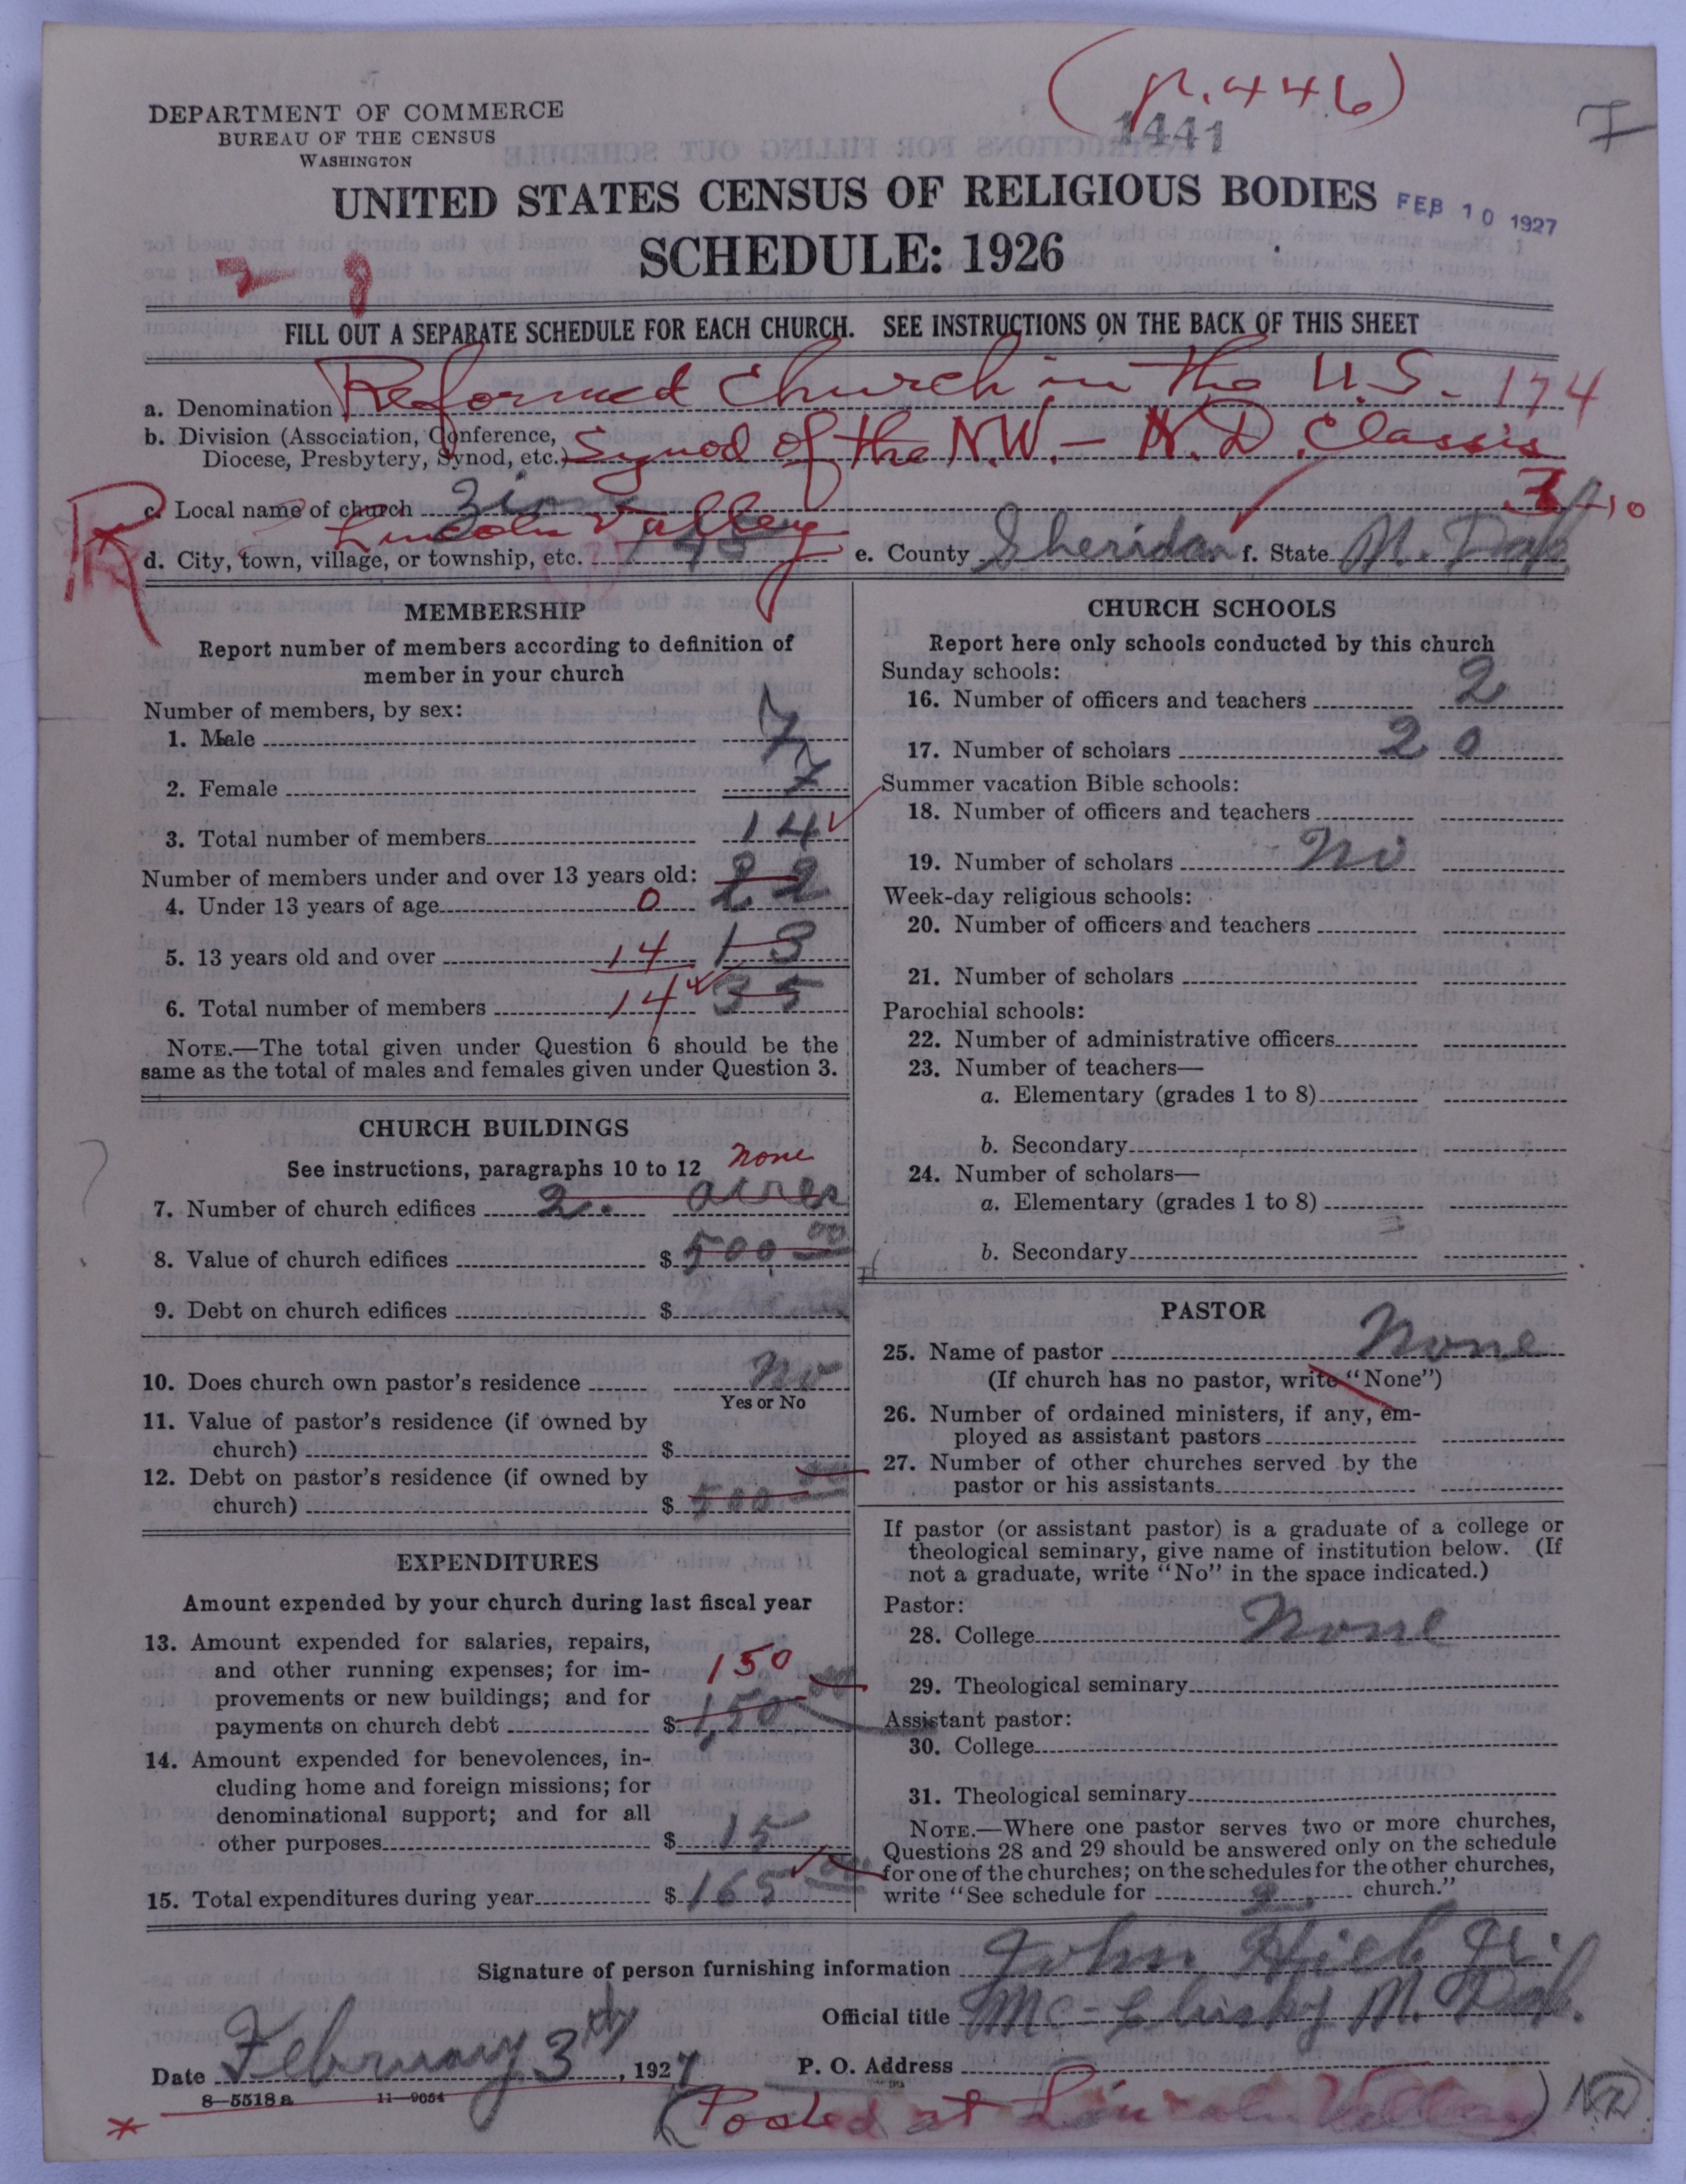 (p. 446)
1441
7
DEPARTMENT OF COMMERCE
BUREAU OF THE CENSUS
WASHINGTON
UNITED STATES CENSUS OF RELIGIOUS BODIES
FEB 10 1927
SCHEDULE: 1926
FILL OUT A SEPARATE SCHEDULE FOR EACH CHURCH. SEE INSTRUCTIONS ON THE BACK OF THIS SHEET
a. Denomination Reformed Church in the U.S. 174
b. Division (Association, Conference, Diocese, Presbytery, Synod, etc.) Synod of the N.W. – N.D. Classis
c. Local name of church Zion
Lincoln Valley
d. City, town, village, or township, etc. e. County Sheridan f. State N. Dak.
MEMBERSHIP
Report number of members according to definition of
member in your church
Number of members, by sex:
1. Male 7
2. Female 7
3. Total number of members 14
Number of members under and over 13 years old:
4. Under 13 years of age 0 22
5. 13 years old and over 14 13
6. Total number of members 14 35
NOTE.—The total given under Question 6 should be the
same as the total of males and females given under Question 3.
CHURCH BUILDINGS
See instructions, paragraphs 10 to 12 none
7. Number of church edifices 2. acres
8. Value of church edifices $ 500 00
9. Debt on church edifices $
10. Does church own pastor's residence No
Yes or No
11. Value of pastor's residence (if owned by
church) $
12. Debt on pastor's residence (if owned by
church) $ 500
EXPENDITURES
Amount expended by your church during last fiscal year
13. Amount expended for salaries, repairs,
and other running expenses; for im-
provements or new buildings; and for
payments on church debt $ 150 150
14. Amount expended for benevolences, in-
cluding home and foreign missions; for
denominational support; and for all
other purposes $ 15
15. Total expenditures during year $ 165
CHURCH SCHOOLS
Report here only schools conducted by this church
Sunday schools:
16. Number of officers and teachers 2
17. Number of scholars 20
Summer vacation Bible schools:
18. Number of officers and teachers
19. Number of scholars No
Week-day religious schools:
20. Number of officers and teachers
21. Number of scholars
Parochial schools:
22. Number of administrative officers
23. Number of teachers—
a. Elementary (grades 1 to 8)
b. Secondary
24. Number of scholars—
a. Elementary (grades 1 to 8)
b. Secondary
PASTOR
25. Name of pastor None
(If church has no pastor, write "None")
26. Number of ordained ministers, if any, em-
ployed as assistant pastors
27. Number of other churches served by the
pastor or his assistants
If pastor (or assistant pastor) is a graduate of a college or
theological seminary, give name of institution below. (If
not a graduate, write "No" in the space indicated.)
Pastor:
28. College None
29. Theological seminary
Assistant pastor:
30. College
31. Theological seminary
NOTE.—Where one pastor serves two or more churches,
Questions 28 and 29 should be answered only on the schedule
for one of the churches; on the schedules for the other churches,
write "See schedule for church."
Signature of person furnishing information John Hieb Jr.
Official title Mc-Clusky N. Dak.
Date February 3th, 1927 P. O. Address
8—5518a 11—9054
(Posted at Lincoln Valley) ND